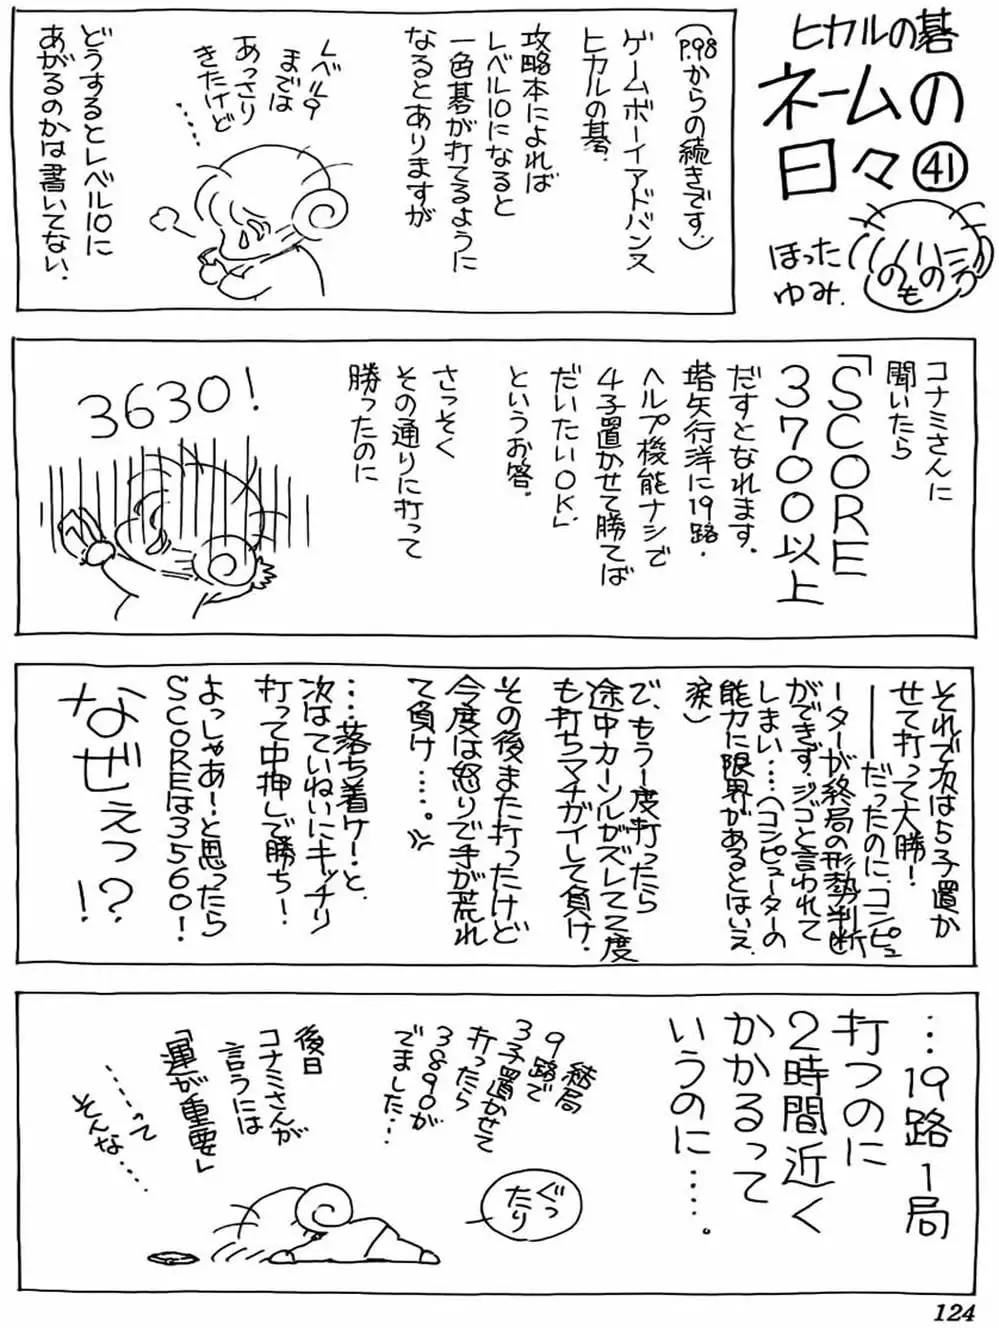 ヒカルの碁
ネームの
日々㊶
ほった
ゆみ.
(P.98からの続きです.)
ゲームボーイアドバンス
ヒカルの碁.
攻略本によれば
レベル10になると
一色碁が打てるように
なるとありますが
レベル9
までは
あっさり
きたけど
……
どうするとレベル10に
あがるのかは書いてない.
コナミさんに
聞いたら
「SCORE
3700以上
だすとなれます.
塔矢行洋に19路.
ヘルプ機能ナシで
4子置かせて勝てば
だいたいOK」
というお答.
さっそく
その通りに打って
勝ったのに
3630!
それで次は5子置か
せて打って大勝!
――だったのに、コンピュ
ーターが終局の形勢判断
ができず、ジゴと言われて
しまい…(コンピューターの
能力に限界があるとはいえ
涙)
で、もう一度打ったら
途中カーソルがズレて2度
も打ちマチガイして負け.
その後また打ったけど
今度は怒りで手が荒れ
て負け……。
…落ち着けー、と、
次はていねいにキッチリ
打って中押しで勝ち!
よっしゃあ!と思ったら
SCOREは3560!
なぜぇっ!?
…19路1局
打つのに
2時間近く
かかるって
いうのに……。
結局
9路で
3子置かせて
打ったら
3890が
でました…
ぐっ
たり
後日
コナミさんが
言うには
「運が重要」
……って
そんな……
124